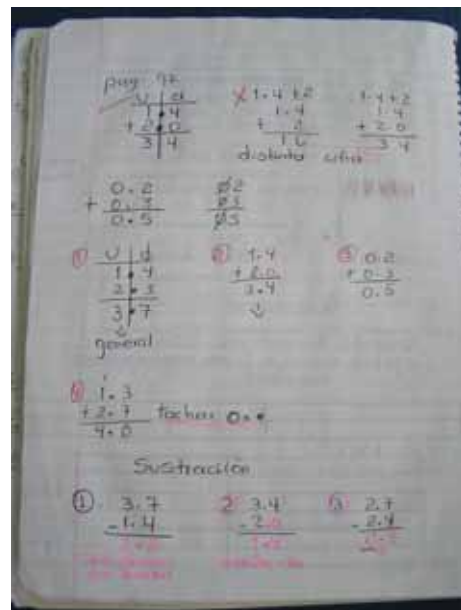 pag. 92
U | d
1 . 4
+ 2 . 0
3 | 4
X 1.4 + 2
1.4
+ 2
1.6
distinta cifra
1.4 + 2
1.4
+ 2.0
3.4
0.2
+ 0.3
0.5
02
03
05
① U | d
1 . 4
2 . 3
3 . 7
general
② 1.4
+ 2.0
3.4
③ 0.2
+ 0.3
0.5
④ 1
1.3
+ 2.7
4.0
tachar 0.
Sustracción
① 3.7
- 1.4
2 3.4
- 2.0
③ 2.7
- 2.4